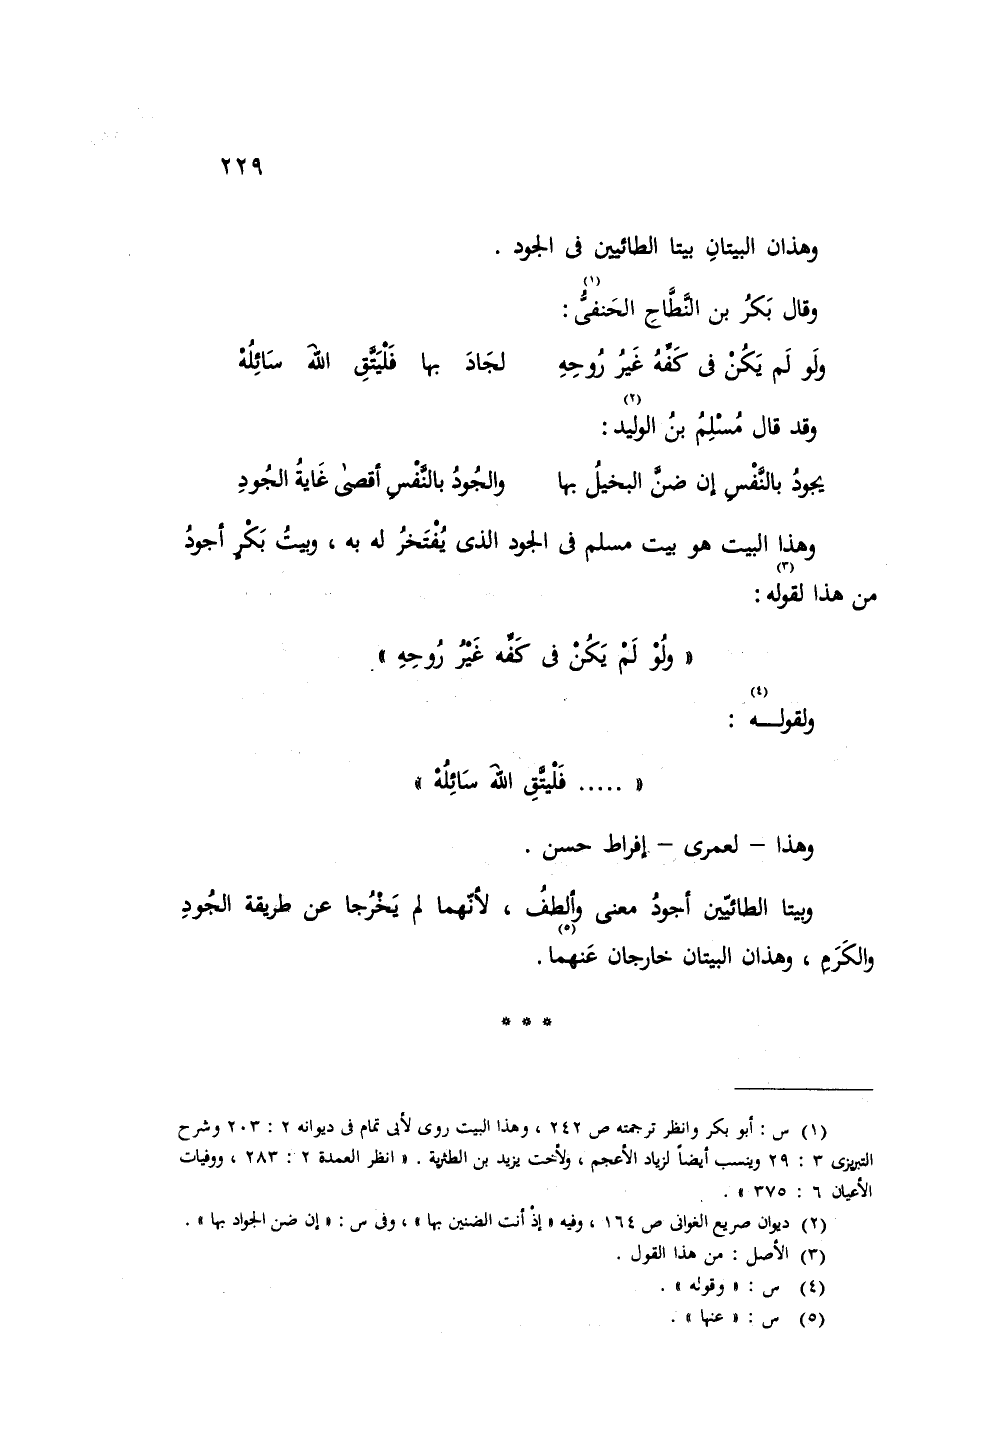 ٢٢٩
وهذان البيتانِ بيتا الطائيين فى الجود .
وقال بَكرُ بن النَّطَّاحِ الحَنفىُّ (١) :
ولَو لَم يَكُنْ فى كَفِّهُ غَيرُ رُوحِهِ لجَادَ بها فَلْيَتَّقِ اللّٰهَ سَائِلُهْ
وقد قال مُسْلِمُ بنُ الوليد (٢) :
يجودُ بالنَّفْسِ إن ضنَّ البخيلُ بها والجُودُ بالنَّفْسِ أقصىٰ غَايةُ الجُودِ
وهذا البيت هو بيت مسلم فى الجود الذى يُفْتَخرُ له به ، وبيتُ بَكْرٍ أجودُ
من هذا لقوله (٣) :
« ولُوْ لَمْ يَكُنْ فى كَفِّه غَيْرُ رُوحِهِ »
ولقولـــه (٤) :
« ..... فَلْيتَّقِ اللّٰهَ سَائِلُهْ »
وهذا – لعمرى – إفراط حسن .
وبيتا الطائيّين أجودُ معنى وألطفُ ، لأنّهما لم يَخْرُجا عن طريقة الجُودِ
والكَرَمِ ، وهذان البيتان خارجان عَنهما (٥) .
* * *
(١) س : أبو بكر وانظر ترجمته ص ٢٤٢ ، وهذا البيت روى لأبى تمام فى ديوانه ٢ : ٢٠٣ وشرح
التبريزى ٣ : ٢٩ وينسب أيضاً لزياد الأعجم ، ولأخت يزيد بن الطثرية . « انظر العمدة ٢ : ٢٨٣ ، ووفيات
الأعيان ٦ : ٣٧٥ » .
(٢) ديوان صريع الغوانى ص ١٦٤ ، وفيه « إذْ أنت الضنين بها » ، وفى س : « إن ضن الجواد بها » .
(٣) الأصل : من هذا القول .
(٤) س : « وقوله » .
(٥) س : « عنها » .